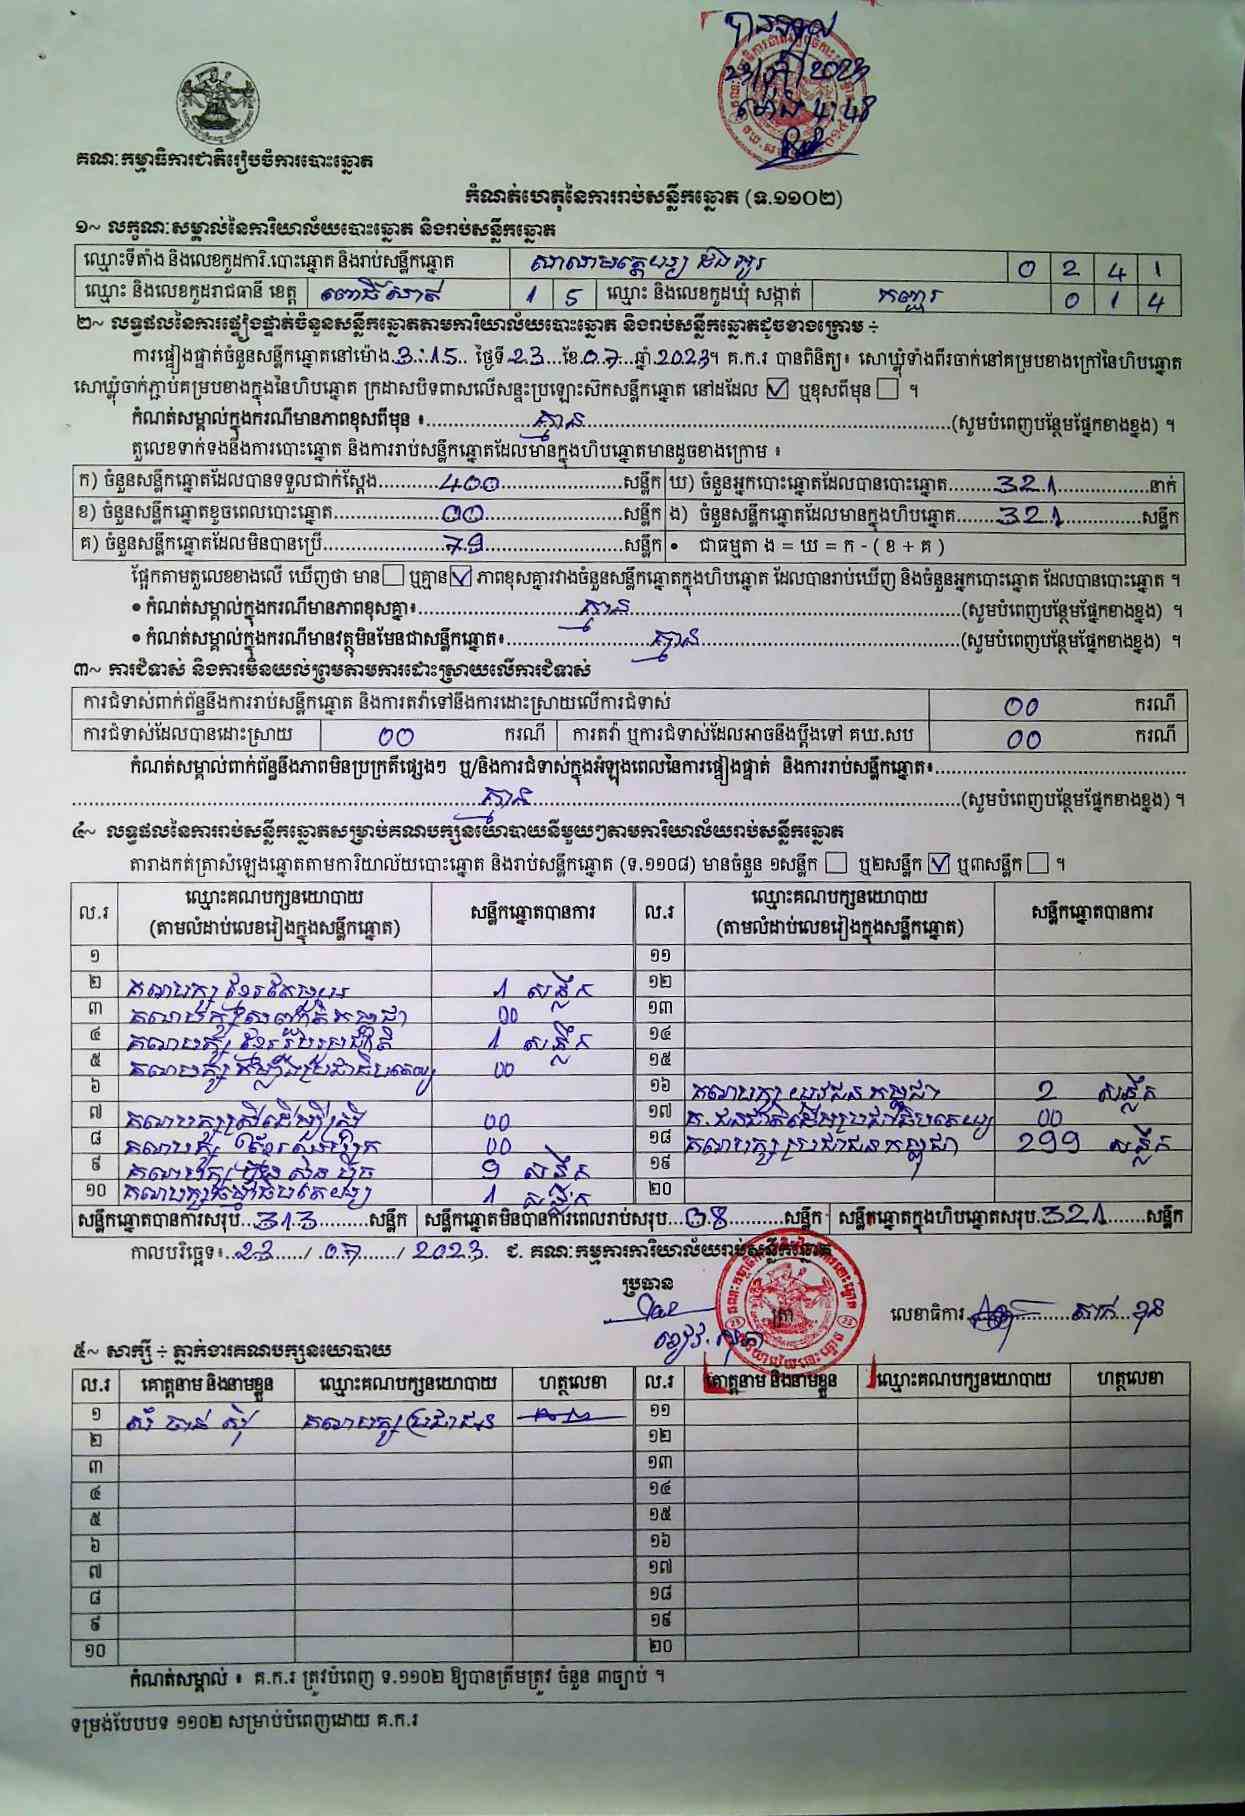 បានចូល
23/07/2023
ម៉ោង 4:48
គណៈកម្មាធិការជាតិរៀបចំការបោះឆ្នោត
កំណត់ហេតុនៃការរាប់សន្លឹកឆ្នោត (ទ.១១០២)
១~ លក្ខណៈសម្គាល់នៃការិយាល័យបោះឆ្នោត និងរាប់សន្លឹកឆ្នោត
ឈ្មោះទីតាំង និងលេខកូដការិ.បោះឆ្នោត និងរាប់សន្លឹកឆ្នោត 0 2 4 1
ឈ្មោះ និងលេខកូដរាជធានី ខេត្ត ពោធិ៍សាត់ 1 5 ឈ្មោះ និងលេខកូដឃុំ សង្កាត់ កញ្ជរ 0 1 4
២~ លទ្ធផលនៃការផ្ទៀងផ្ទាត់ចំនួនសន្លឹកឆ្នោតតាមការិយាល័យបោះឆ្នោត និងរាប់សន្លឹកឆ្នោតដូចខាងក្រោម ÷
ការផ្ទៀងផ្ទាត់ចំនួនសន្លឹកឆ្នោតនៅម៉ោង 3:15 ថ្ងៃទី 23 ខែ 07 ឆ្នាំ 2023។ គ.ក.រ បានពិនិត្យ៖ សោឃ្លុំទាំងពីរចាក់នៅគម្របខាងក្រៅនៃហិបឆ្នោត
សោឃ្លុំចាក់ភ្ជាប់គម្របខាងក្នុងនៃហិបឆ្នោត ក្រដាសបិទពាសលើសន្ទះប្រឡោះស៊កសន្លឹកឆ្នោត នៅដដែល ☑ ឬខុសពីមុន ☐ ។
កំណត់សម្គាល់ក្នុងករណីមានភាពខុសពីមុន ៖ គ្មាន (សូមបំពេញបន្ថែមផ្នែកខាងខ្នង) ។
តួលេខទាក់ទងនឹងការបោះឆ្នោត និងការរាប់សន្លឹកឆ្នោតដែលមានក្នុងហិបឆ្នោតមានដូចខាងក្រោម ៖
ក) ចំនួនសន្លឹកឆ្នោតដែលបានទទួលជាក់ស្តែង 400 សន្លឹក ឃ) ចំនួនអ្នកបោះឆ្នោតដែលបានបោះឆ្នោត 321 នាក់
ខ) ចំនួនសន្លឹកឆ្នោតខូចពេលបោះឆ្នោត 00 សន្លឹក ង) ចំនួនសន្លឹកឆ្នោតដែលមានក្នុងហិបឆ្នោត 321 សន្លឹក
គ) ចំនួនសន្លឹកឆ្នោតដែលមិនបានប្រើ 79 សន្លឹក • ជាធម្មតា ង = ឃ = ក - ( ខ + គ )
ផ្អែកតាមតួលេខខាងលើ ឃើញថា មាន ☐ ឬគ្មាន ☑ ភាពខុសគ្នារវាងចំនួនសន្លឹកឆ្នោតក្នុងហិបឆ្នោត ដែលបានរាប់ឃើញ និងចំនួនអ្នកបោះឆ្នោត ដែលបានបោះឆ្នោត ។
• កំណត់សម្គាល់ក្នុងករណីមានភាពខុសគ្នា៖ គ្មាន (សូមបំពេញបន្ថែមផ្នែកខាងខ្នង) ។
• កំណត់សម្គាល់ក្នុងករណីមានវត្ថុមិនមែនជាសន្លឹកឆ្នោត៖ គ្មាន (សូមបំពេញបន្ថែមផ្នែកខាងខ្នង) ។
៣~ ការជំទាស់ និងការមិនយល់ព្រមតាមការដោះស្រាយលើការជំទាស់
ការជំទាស់ពាក់ព័ន្ធនឹងការរាប់សន្លឹកឆ្នោត និងការតវ៉ាទៅនឹងការដោះស្រាយលើការជំទាស់ 00 ករណី
ការជំទាស់ដែលបានដោះស្រាយ 00 ករណី ការតវ៉ា ឬការជំទាស់ដែលអាចនឹងប្តឹងទៅ គឃ.សប 00 ករណី
កំណត់សម្គាល់ពាក់ព័ន្ធនឹងភាពមិនប្រក្រតីផ្សេងៗ ឬ/និងការជំទាស់ក្នុងអំឡុងពេលនៃការផ្ទៀងផ្ទាត់ និងការរាប់សន្លឹកឆ្នោត៖
គ្មាន (សូមបំពេញបន្ថែមផ្នែកខាងខ្នង) ។
៤~ លទ្ធផលនៃការរាប់សន្លឹកឆ្នោតសម្រាប់គណបក្សនយោបាយនីមួយៗតាមការិយាល័យរាប់សន្លឹកឆ្នោត
តារាងកត់ត្រាសំឡេងឆ្នោតតាមការិយាល័យបោះឆ្នោត និងរាប់សន្លឹកឆ្នោត (ទ.១១០៨) មានចំនួន ១សន្លឹក ☐ ឬ២សន្លឹក ☑ ឬ៣សន្លឹក ☐ ។
ល.រ ឈ្មោះគណបក្សនយោបាយ (តាមលំដាប់លេខរៀងក្នុងសន្លឹកឆ្នោត) សន្លឹកឆ្នោតបានការ ល.រ ឈ្មោះគណបក្សនយោបាយ (តាមលំដាប់លេខរៀងក្នុងសន្លឹកឆ្នោត) សន្លឹកឆ្នោតបានការ
១ ១១
២ គណបក្ស ខ្មែរតែមួយ 1 សន្លឹក ១២
៣ គណបក្ស សញ្ជាតិកម្ពុជា 00 ១៣
៤ គណបក្ស ខ្មែររួបរួមជាតិ 1 សន្លឹក ១៤
៥ គណបក្ស កម្លាំងប្រជាធិបតេយ្យ 00 ១៥
៦ ១៦ គណបក្ស យុវជនកម្ពុជា 2 សន្លឹក
៧ គណបក្សស្រីដើម្បីស្រី 00 ១៧ គ.ជនជាតិដើមប្រជាធិបតេយ្យ 00
៨ គណបក្ស 00 ១៨ គណបក្សប្រជាជនកម្ពុជា 299 សន្លឹក
៩ គណបក្សហ្វ៊ុនស៊ិនប៉ិច 9 សន្លឹក ១៩
១០ គណបក្សធម្មាធិបតេយ្យ 1 សន្លឹក ២០
សន្លឹកឆ្នោតបានការសរុប 313 សន្លឹក សន្លឹកឆ្នោតមិនបានការពេលរាប់សរុប 08 សន្លឹក សន្លឹកឆ្នោតក្នុងហិបឆ្នោតសរុប 321 សន្លឹក
កាលបរិច្ឆេទ៖ 23 / 07 / 2023 ជ. គណៈកម្មការការិយាល័យរាប់សន្លឹកឆ្នោត
ប្រធាន
ត្រា លេខាធិការ
៥~ សាក្សី ÷ ភ្នាក់ងារគណបក្សនយោបាយ
ល.រ គោត្តនាម និងនាមខ្លួន ឈ្មោះគណបក្សនយោបាយ ហត្ថលេខា ល.រ គោត្តនាម និងនាមខ្លួន ឈ្មោះគណបក្សនយោបាយ ហត្ថលេខា
១ គណបក្សប្រជាជន ១១
២ ១២
៣ ១៣
៤ ១៤
៥ ១៥
៦ ១៦
៧ ១៧
៨ ១៨
៩ ១៩
១០ ២០
កំណត់សម្គាល់ ៖ គ.ក.រ ត្រូវបំពេញ ទ.១១០២ ឱ្យបានត្រឹមត្រូវ ចំនួន ៣ច្បាប់ ។
ទម្រង់បែបបទ ១១០២ សម្រាប់បំពេញដោយ គ.ក.រ